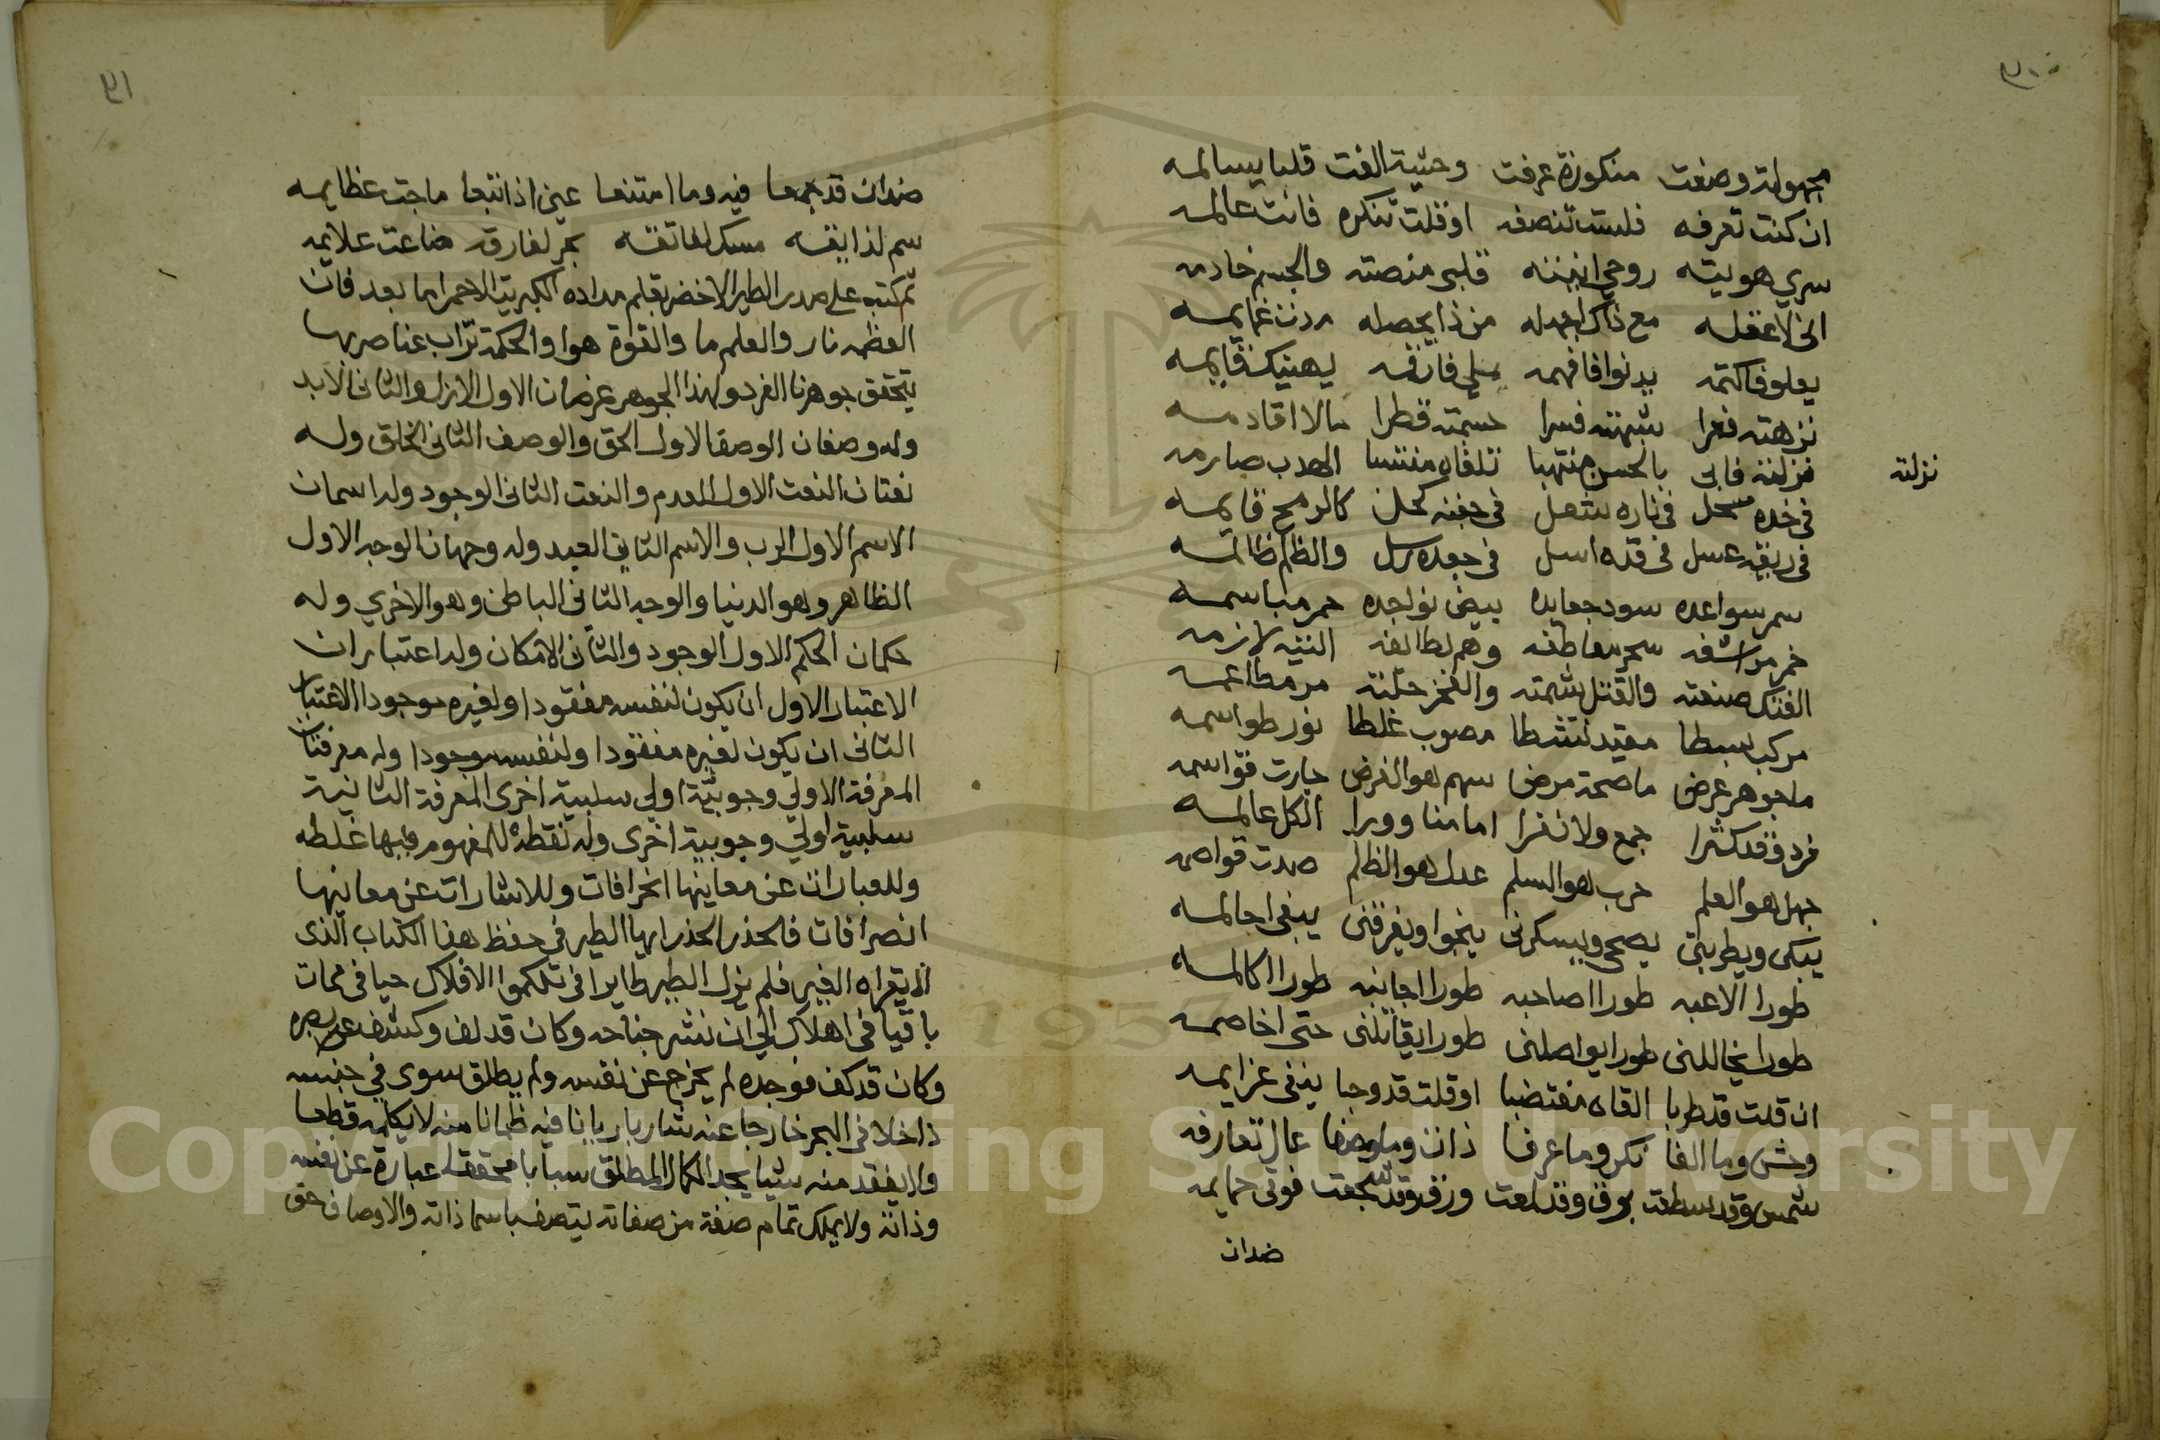 ٣٠
مجهولة وصفت منكورة عرفت وحشية الفت قلبا يسالمه
ان كنت تعرفه فلست تنصفه او قلت تنكره فانت عالمه
سري هويته روحي انيته قلبي منصته والجسم خادمه
اني لاعقله مع ذاك اجهله من ذا يحصله غمايمه
يعلو فاكتمه يدنو فافهمه فارقمه يهنيك قايمه
نزهته فعرا شبهته فسرا جسمته فطرا مالا اقادمه
نزلته فابى بالحسن منتهبا تلقاه منتسبا الهدب صارمه
نزلته
في خده سجل في ناره شعل في جفنه كحل كالرمح قايمه
في ريقه عسل في قده اسل في جعده رسل والظلم ظالمه
سمر سواعده سود جعايده بيض نواجده حمر مباسمه
خمر مراشفه سحر معاطفه وهم لطايفه التيه لازمه
الفتك صنعته والقتل شيمته والهجر حليته مر مطاعمه
مركب بسطا مقيد نشطا مصوب غلطا نور طواسمه
ما جوهر عرض ما صحة مرض سهم هو الغرض حارت قواسمه
فرد وقد كثرا جمع ولا نفرا امامنا وورا الكل عالمه
جهل هو العلم حرب هو السلم عدل هو الظلم صمدت قواصمه
يبكي ويطربني يصحي ويسكرني ينجوا ويغرقني يبغي احالمه
طورا الاعبه طورا اصاحبه طورا اجانبه طورا اكالمه
طورا يخاللني طورا يواصلني طورا يقاتلني حتى اخاصمه
ان قلت قد طربا القاه مغتضبا او قلت قد وجبا ينفي عزايمه
وحش وما الفا نكر وما عرفا ذات وما وصفا عال تعارفه
شمس وقد سطعت برق وقد لمعت ورق وقد سجعت فوقي حمايمه
ضدان
٣١
ضدان قد جمعا فيه وما امتنعا عين اذا نبعا ماجت عظايمه
سم لذايقه مسك لفاتقه بحر لفارقه ضاعت علايمه
ثم كتب على صدر الطير الاخضر بقلم مداده الكبريت الاحمر اما بعد فان
العظمه نار والعلم ما والقوة هوا والحكمة تراب عناصر بها
يتحقق جوهرنا الفرد ولهذا الجوهر عرضان الاول الازل والثاني الابد
وله وصفان الوصف الاول الحق والوصف الثاني الخلق وله
نعتان النعت الاول القدم والنعت الثاني الوجود وله اسمان
الاسم الاول الرب والاسم الثاني العبد وله وجهان الوجه الاول
الظاهر وهو الدنيا والوجه الثاني الباطن وهو الاخري وله
حكمان الحكم الاول الوجود والثاني الامكان وله اعتباران
الاعتبار الاول ان يكون لنفسه مفقودا ولغيره موجودا الاعتبار
الثاني ان يكون لغيره مفقودا ولنفسه موجودا وله معرفتان
المعرفة الاولي وجوبية اولي سلبية اخرى المعرفة الثانية
سلبية اولي وجوبية اخرى وله نقطة للمفهوم فيها غلطه
وللعبارات عن معاينها انحرافات وللاشارات عن معانيها
انصرافات فالحذر الحذر ايها الطير في حفظ هذا الكتاب الذى
لا يقراه الغير فلم يزل الطير طايرا في تلكموا الافلاك حيا في ممات
باقيا في اهلاك الي ان نشر جناحه وكان قد لف وكشف عن بصره
وكان قد كف فوجده لم يخرج عن نفسه ولم يطلق سوى في جنسه
داخلا في البحر خارجا عنه شاربا ريانا فيه ظمانا منه لا يكلمه قطعا
ولا يفقد منه شيا يجد الكمال المطلق محققا عبارة عن نفسه
وذاته ولا يملك تمام صفة من صفاته يتصف باسما ذاته والاوصاف حق